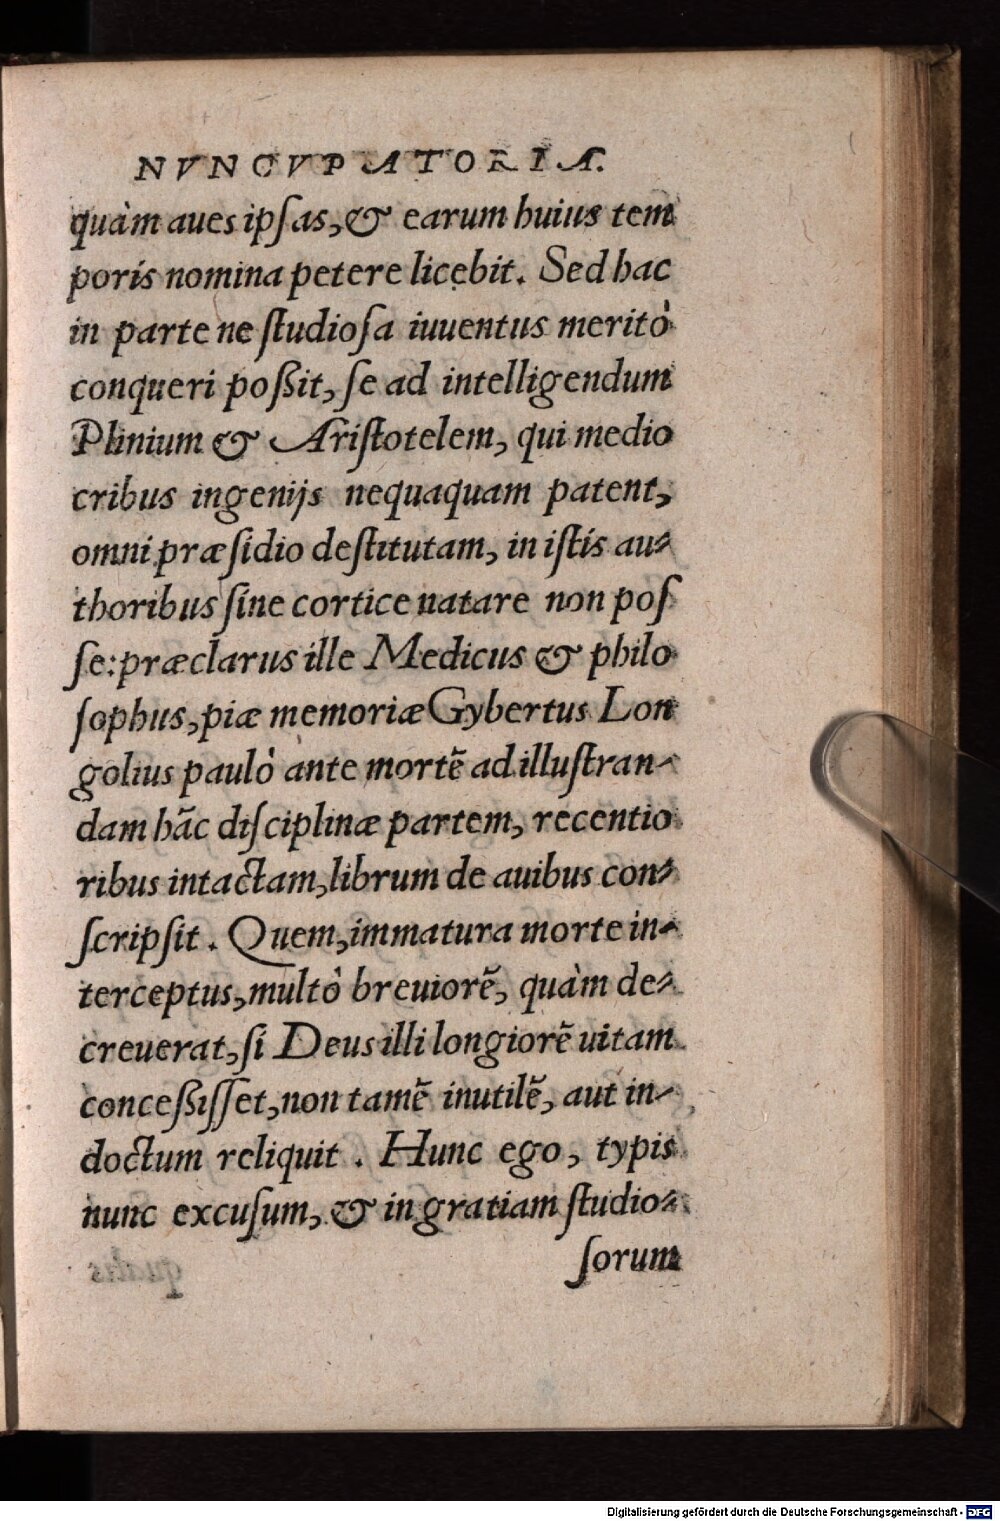 NVNCVPATORIA.
quàm aues ipſas, & earum huius tem
poris nomina petere licebit. Sed hac
in parte ne ſtudioſa iuuentus meritò
conqueri poßit, ſe ad intelligendum
Plinium & Ariſtotelem, qui medio
cribus ingenijs nequaquam patent,
omni præſidio deſtitutam, in iſtis au-
thoribus ſine cortice natare non poſ
ſe: præclarus ille Medicus & philo
ſophus, piæ memoriæ Gybertus Lon
golius paulò ante mortẽ ad illuſtran-
dam hãc diſciplinæ partem, recentio
ribus intactam, librum de auibus con-
ſcripſit. Quem, immatura morte in-
terceptus, multò breuiorẽ, quàm de-
creuerat, ſi Deus illi longiorẽ uitam
conceßiſſet, non tamẽ inutilẽ, aut in-
doctum reliquit. Hunc ego, typis
nunc excuſum, & in gratiam ſtudio-
ſorum
Digitalisierung gefördert durch die Deutsche Forschungsgemeinschaft - DFG